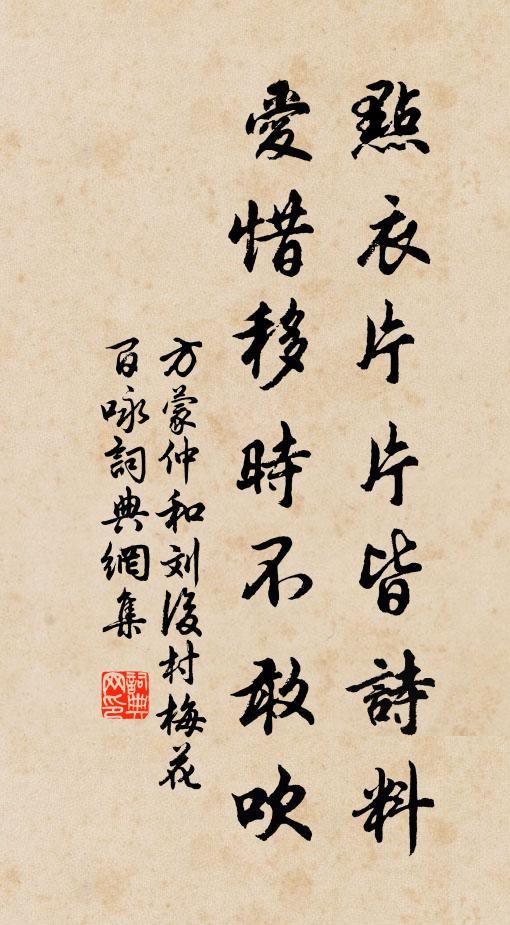 點衣片片皆詩料
愛惜移時不敢吹
方蒙仲和刘後村梅花
百咏詞典網集
詞典
网印